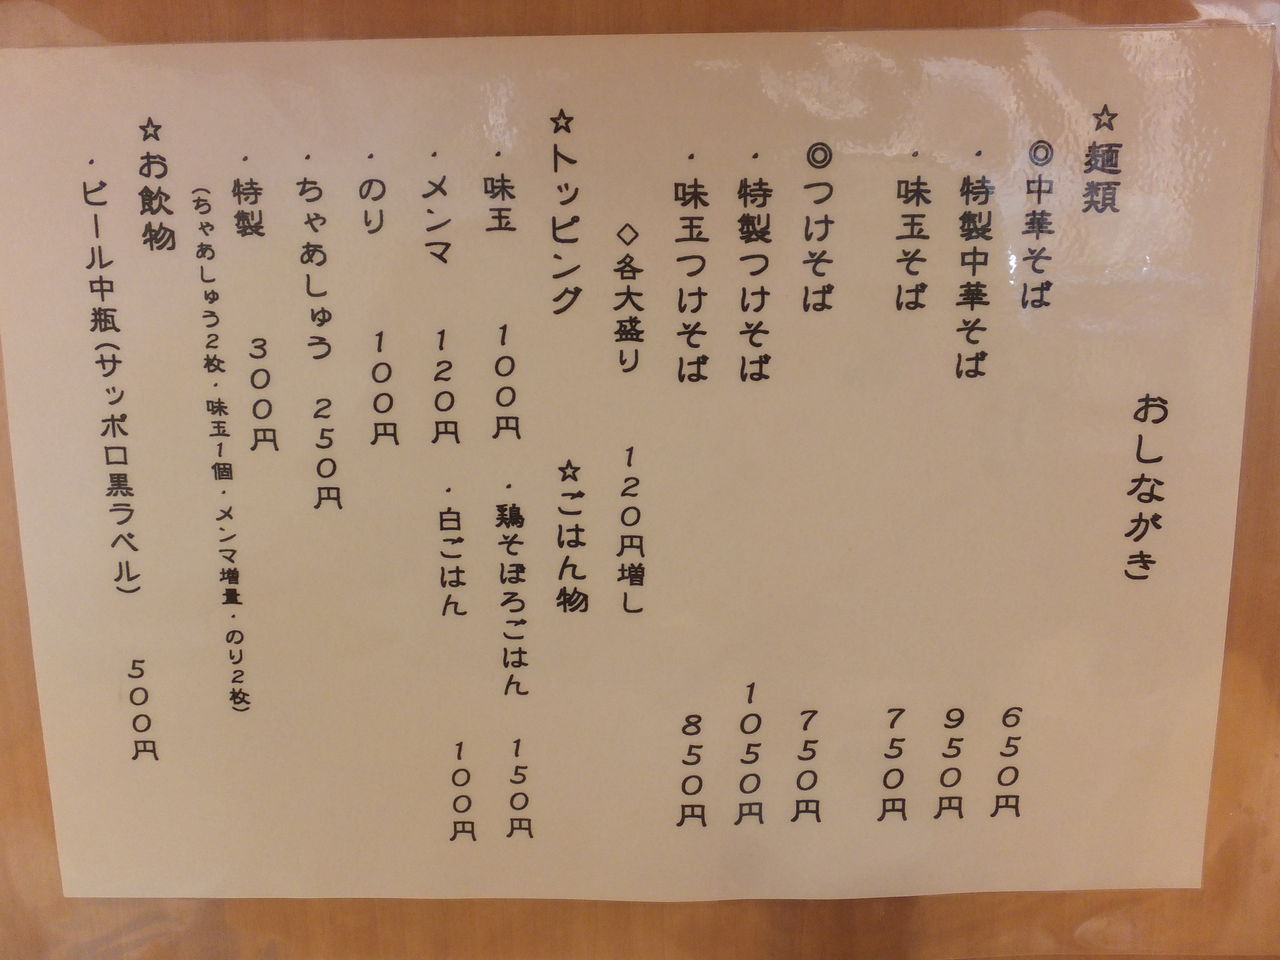 おしながき
☆麺類
◎中華そば 650円
・特製中華そば 950円
・味玉そば 750円
◎つけそば 750円
・特製つけそば 1050円
・味玉つけそば 850円
◇各大盛り 120円増し
☆トッピング
・味玉 100円
・メンマ 120円
・のり 100円
・ちゃあしゅう 250円
・特製 300円
(ちゃあしゅう2枚・味玉1個・メンマ増量・のり2枚)
☆ごはん物
・鶏そぼろごはん 150円
・白ごはん 100円
☆お飲物
・ビール中瓶(サッポロ黒ラベル) 500円